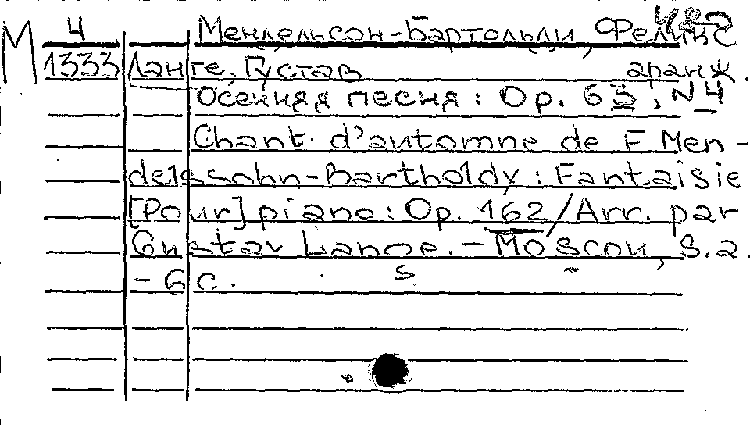 М 4 Мендельсон-Бартольди, Феликс
1333 Ланге, Густав аранж.
Осенняя песня: Op. 63, N 4
Chant d'automne de F. Men-
delssohn-Bartholdy: Fantaisie
[Pour] piano: Op. 162 / Arr. par
Gustav Lange. - Moscou, S.a.
- 6 с.